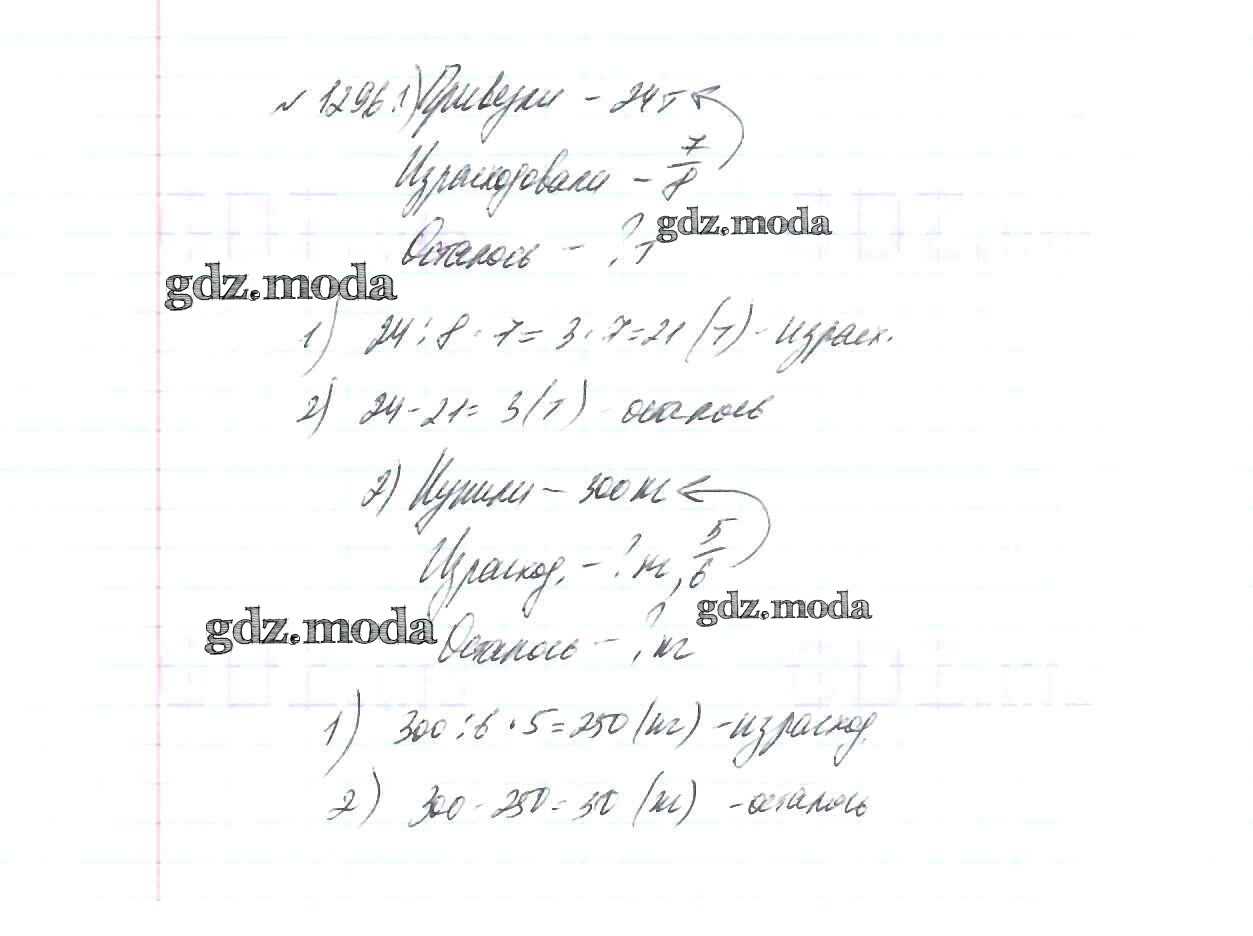 № 1296. 1) Привезли – 24 т
Израсходовали – 7/8
gdz.moda
Осталось – ? т
gdz.moda
1) 24 : 8 · 7 = 3 · 7 = 21 (т) – израсх.
2) 24 - 21 = 3 (т) осталось
2) Купили – 300 кг
Израсход. – ? кг, 5/6
gdz.moda
gdz.moda
Осталось – ? кг
1) 300 : 6 · 5 = 250 (кг) – израсход.
2) 300 - 250 = 50 (кг) – осталось